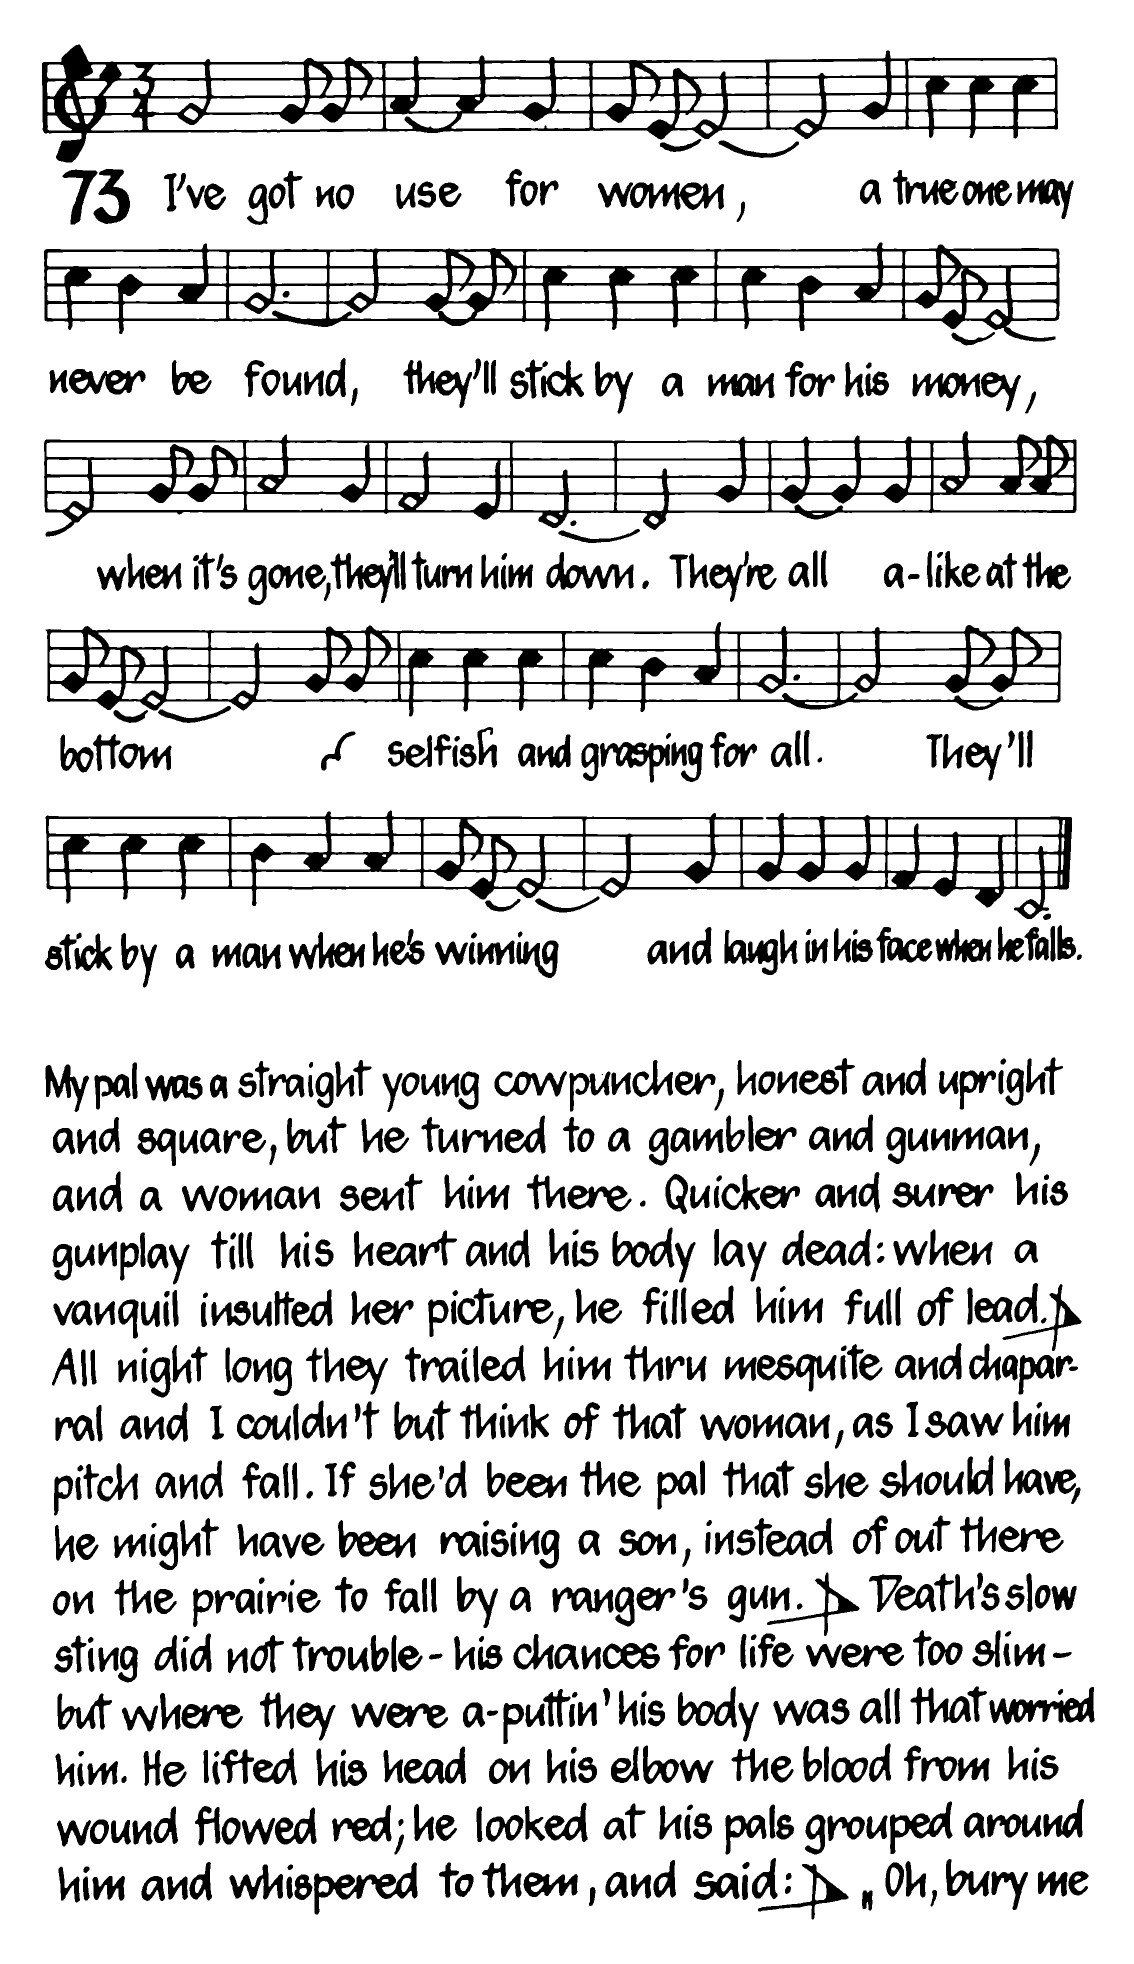 3
4
73 I've got no use for women, a true one may
never be found, they'll stick by a man for his money,
when it's gone, they'll turn him down. They're all a-like at the
bottom selfish and grasping for all. They'll
stick by a man when he's winning and laugh in his face when he falls.
My pal was a straight young cowpuncher, honest and upright
and square, but he turned to a gambler and gunman,
and a woman sent him there. Quicker and surer his
gunplay till his heart and his body lay dead: when a
vanquil insulted her picture, he filled him full of lead.
All night long they trailed him thru mesquite and chapar-
ral and I couldn't but think of that woman, as I saw him
pitch and fall. If she'd been the pal that she should have,
he might have been raising a son, instead of out there
on the prairie to fall by a ranger's gun. Death's slow
sting did not trouble - his chances for life were too slim -
but where they were a-puttin' his body was all that worried
him. He lifted his head on his elbow the blood from his
wound flowed red; he looked at his pals grouped around
him and whispered to them, and said: „Oh, bury me